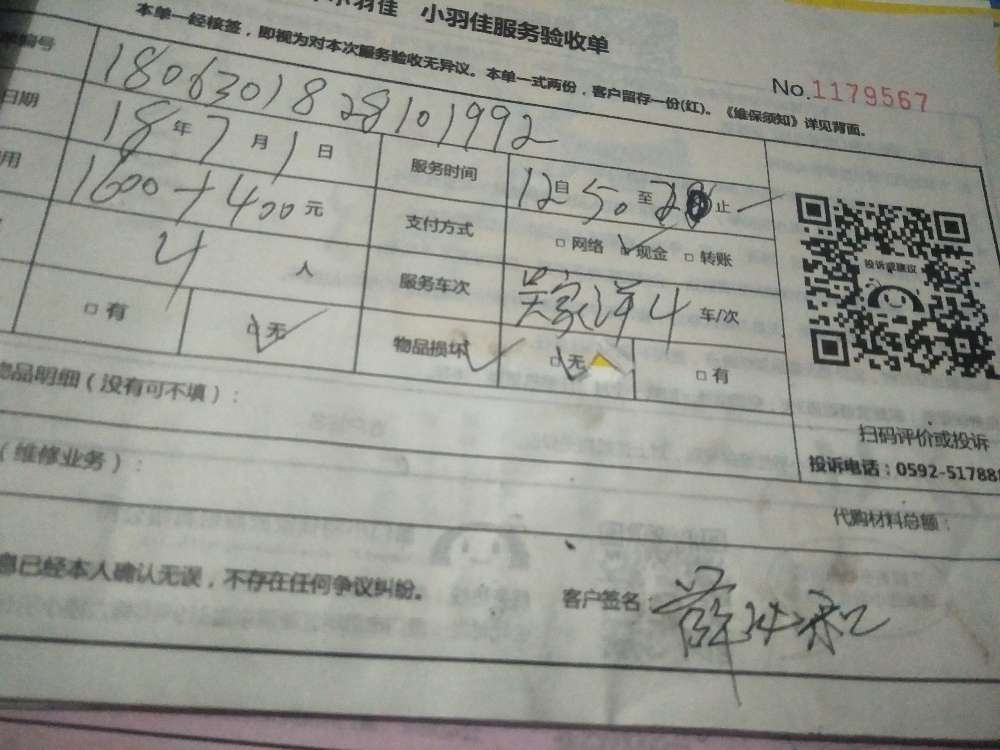 小羽佳 小羽佳服务验收单
本单一经核签，即视为对本次服务验收无异议。本单一式两份，客户留存一份(红)。《维保须知》详见背面。
No.1179567
编号 1806301828101992
日期 18年7月1日 服务时间 12自50至 止
用 1600+400元 支付方式 □网络 □现金 □转账
4人 服务车次 4车/次
□有 □无 物品损坏 □无 □有
投诉或建议
扫码评价或投诉
投诉电话：0592-517888
物品明细（没有可不填）：
（维修业务）：
代购材料总额：
息已经本人确认无误，不存在任何争议纠纷。
客户签名：